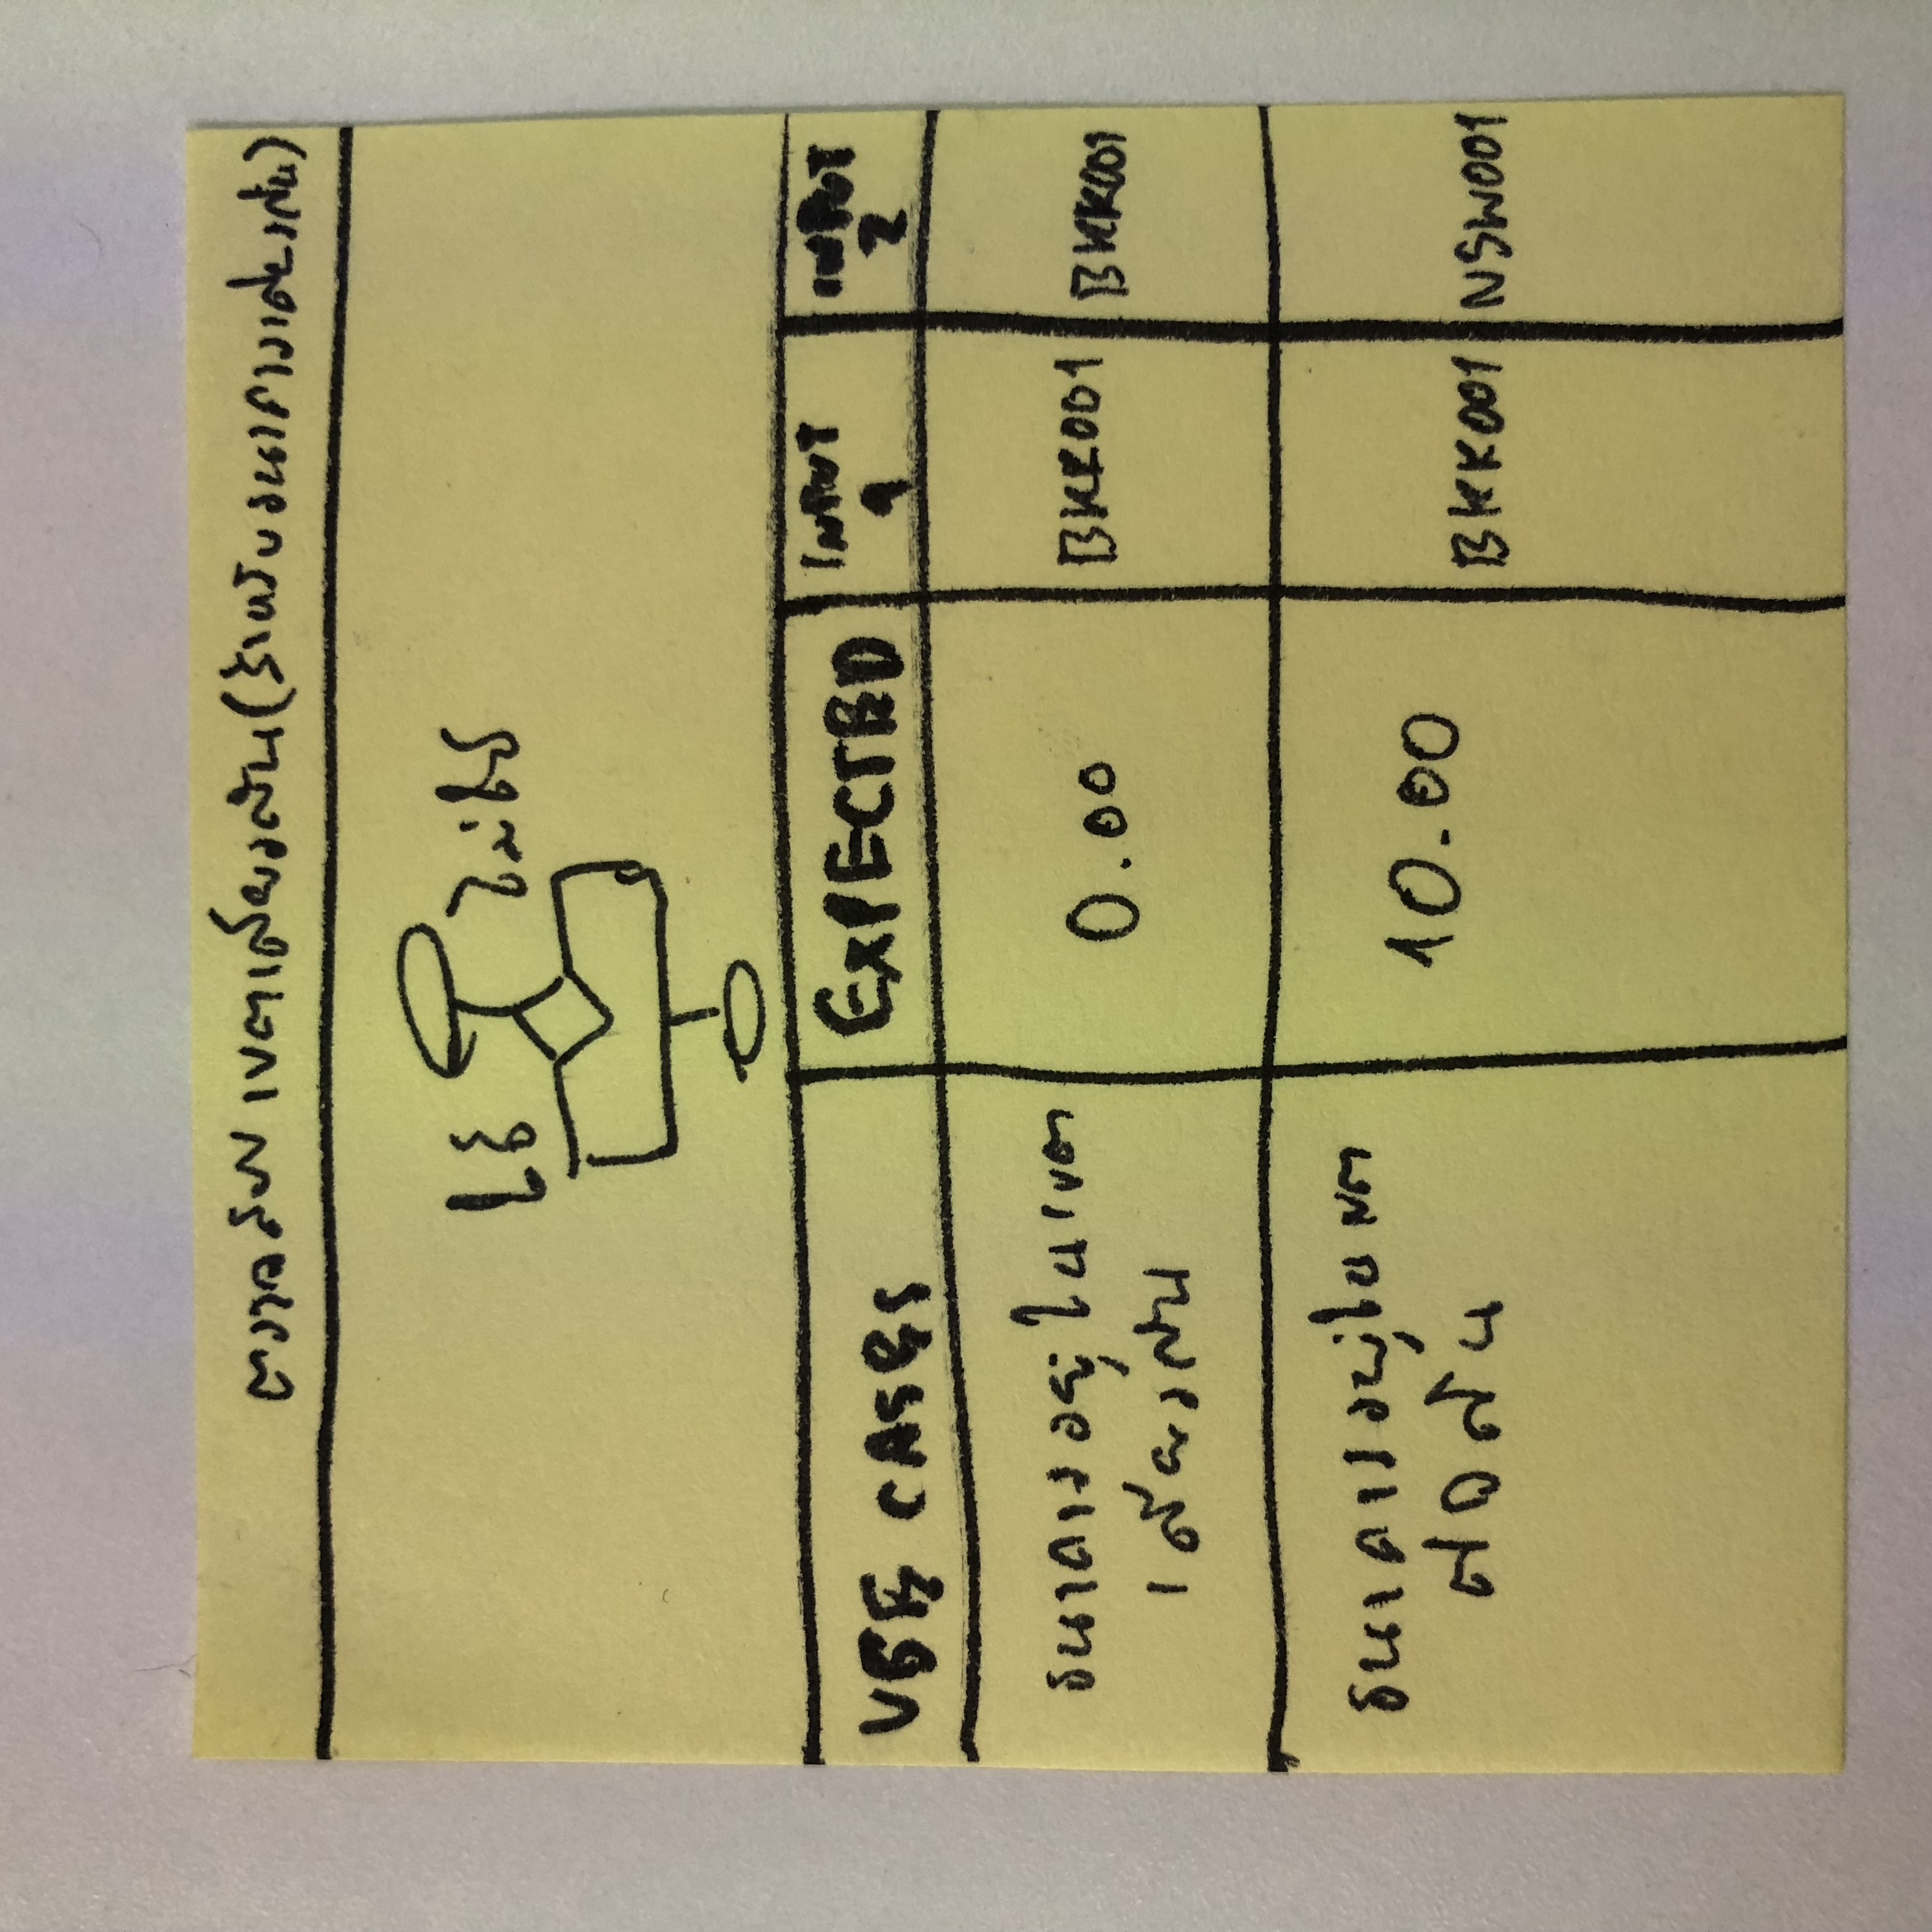 ตรวจสอบ เขตเดียวกัน (สำหรับธนาคารเดียวกัน)
ใช่ ไม่ใช่
USE CASES EXPECTED INPUT 1 INPUT 2
ธนาคารอยู่ในเขต
เดียวกัน
0.00 BKK001 BKK001
ธนาคารอยู่ในเขต
ต่อกัน
10.00 BKK001 NSW001